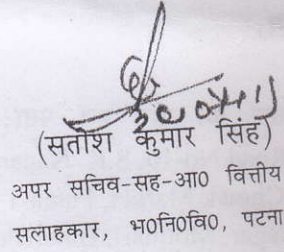 (सतीश कुमार सिंह)
अपर सचिव-सह-आ0 वित्तीय
सलाहकार, भ0नि0वि0, पटना